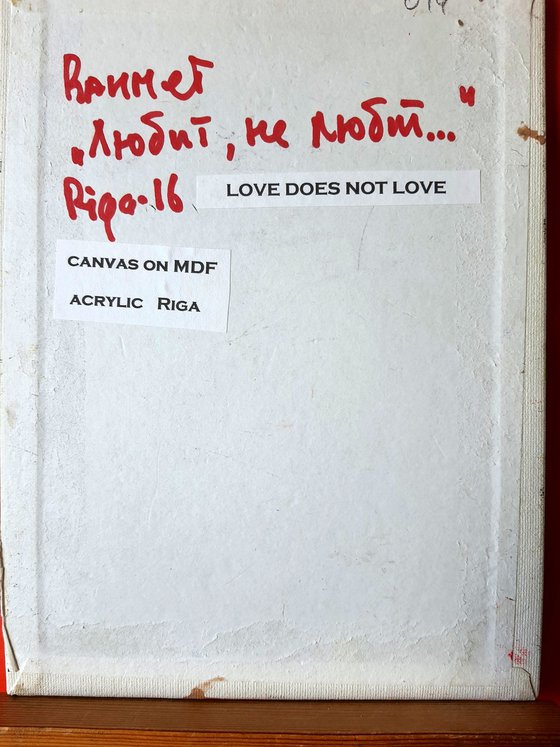 Ваимет
„Любит, не любит..."
Riga-16 LOVE DOES NOT LOVE
CANVAS ON MDF
ACRYLIC RIGA